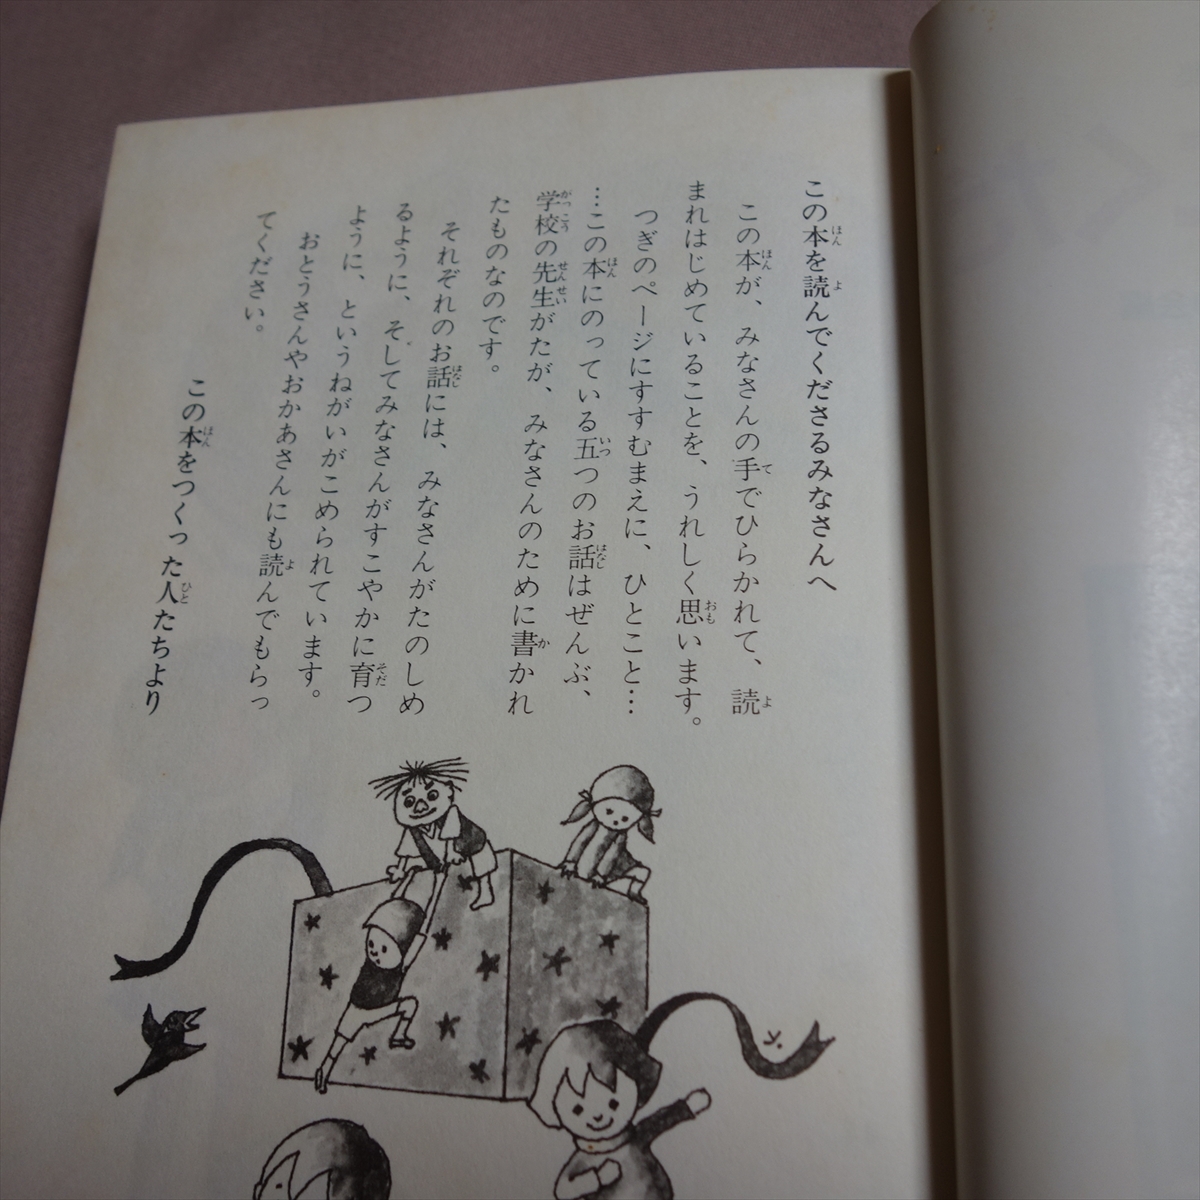 この本を読んでくださるみなさんへ
この本が、みなさんの手でひらかれて、読
まれはじめていることを、うれしく思います。
つぎのページにすすむまえに、ひとこと…
…この本にのっている五つのお話はぜんぶ、
学校の先生がたが、みなさんのために書かれ
たものなのです。
それぞれのお話には、みなさんがたのしめ
るように、そしてみなさんがすこやかに育つ
ように、というねがいがこめられています。
おとうさんやおかあさんにも読んでもらっ
てください。
この本をつくった人たちより